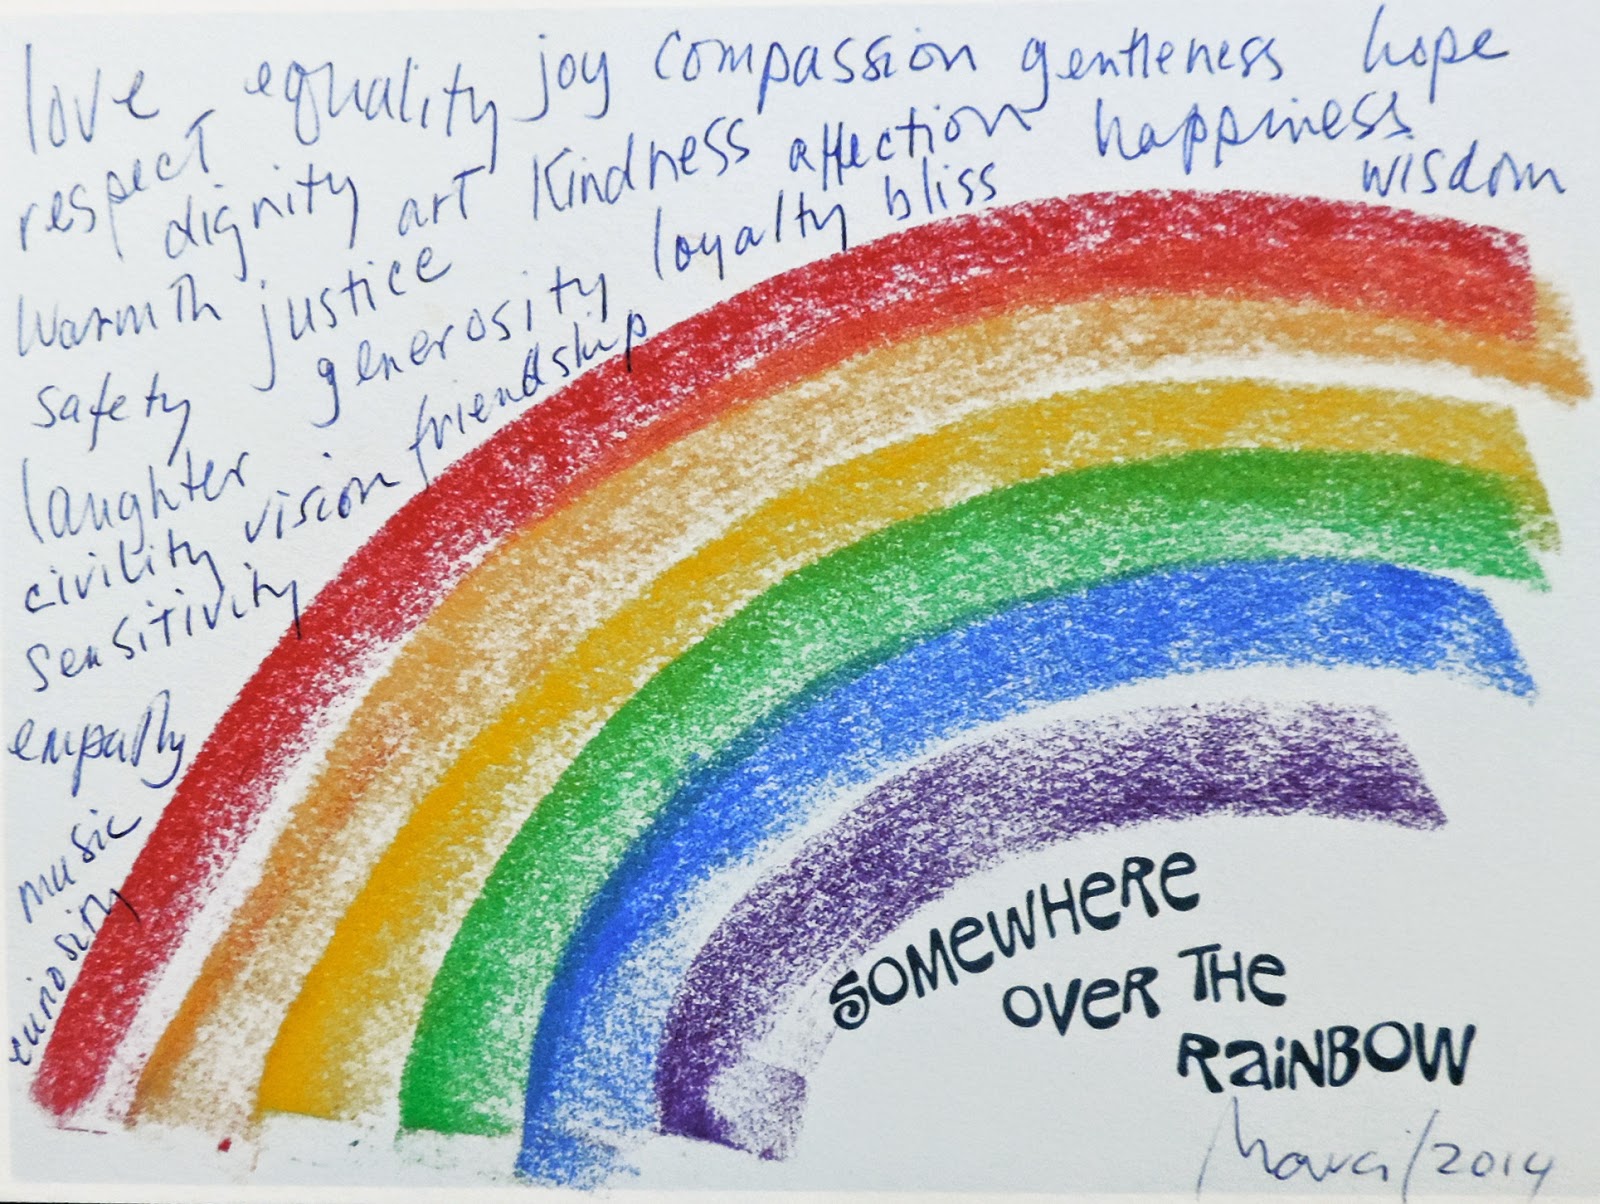 love equality joy compassion gentleness hope
respect dignity art kindness affection happiness
warmth justice generosity loyalty bliss wisdom
safety friendship
laughter vision
civility
sensitivity
empathy
music
curiosity
SOMEWHERE
OVER THE
RAINBOW
/2014